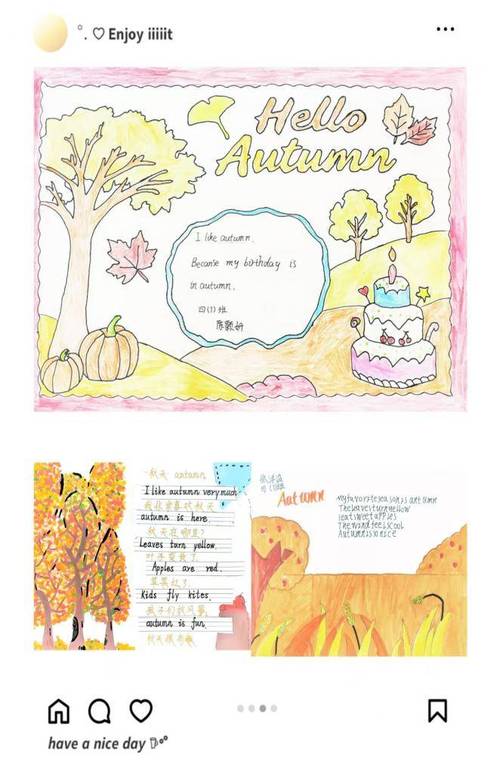 °. ♡ Enjoy iiiiit
Hello
Autumn
I like autumn.
Because my birthday is
in autumn.
四(1)班
秋天 autumn
I like autumn very much
我非常喜欢秋天
autumn is here.
秋天在哪里?
Leaves turn yellow.
叶子变黄了
Apples are red.
苹果红了
kids fly kites.
孩子们放风筝
autumn is fun.
秋天很有趣
Autumn
My favorite season is autumn
The leaves turn yellow
I eat sweet apples
The wind feels cool
Autumn is so nice
have a nice day